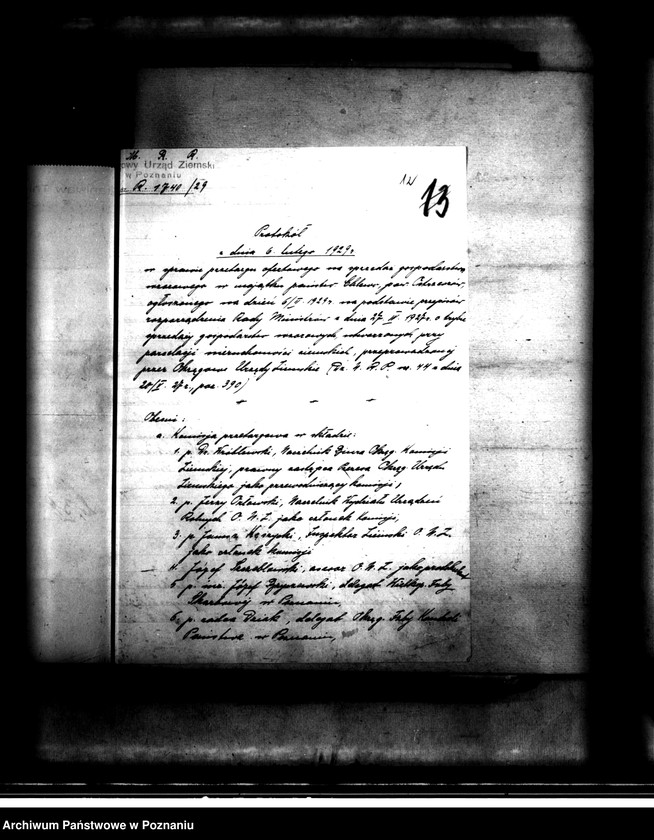 M. R. R.
owy Urząd Ziemski
w Poznaniu
R. 1740/29
12
13
Protokół
z dnia 6 lutego 1929 r.
w sprawie przetargu ofertowego na sprzedaż gospodarstwa
wzorowego w majątku państw.
ogłoszonego na dzień 6/II 1929 r. na podstawie przepisów
rozporządzenia Rady Ministrów z dnia 27 1927 r. o trybie
sprzedaży gospodarstw wzorowych, utworzonych przy
parcelacji nieruchomości ziemskich, przeprowadzonej
przez Okręgowe Urzędy Ziemskie (Dz. U. R. P. nr. 44 z dnia
20/V. 27 r., poz. 390)
Obecni:
a. Komisja przetargowa w składzie:
1. p. Dr. Naczelnik Okręg. Komisji
Ziemskiej, prawny zastępca Prezesa Okręg. Urzędu
Ziemskiego jako przewodniczący komisji,
2. p. Jerzy Naczelnik Wydziału Urządzeń
Rolnych O. U. Z. jako członek komisji,
3. p. Inspektor Ziemski O. U. Z.
jako członek komisji
4. Józef asesor O. U. Z. jako
5. p. Józef delegat Wielkp. Izby
Skarbowej w Poznaniu,
6. p. radca delegat Okręg. Izby Kontroli
Państwa w Poznaniu,
Archiwum Państwowe w Poznaniu